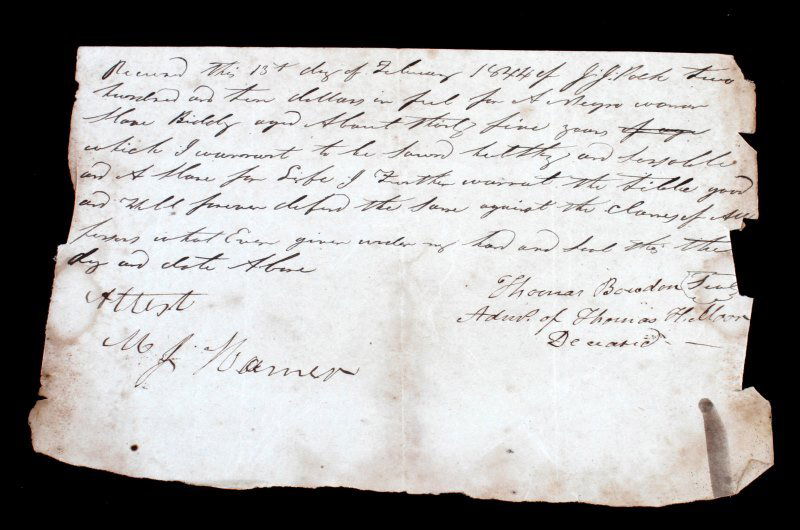 Received this 13th day of February 1844 of J. J. Polk two
hundred and ten dollars in full for A Negro woman
Slave Biddy aged About thirty five years of age
which I warrant to be sound helthy and sensable
and A Slave for Life I Further warrant the title good
and Will forever defend the same against the claimes of All
persons what Ever given under my hand and seal this the
day and date Above
Attest
Thomas Bowdon Seal
Admr. of Thomas H.
Deceased
M J Warner